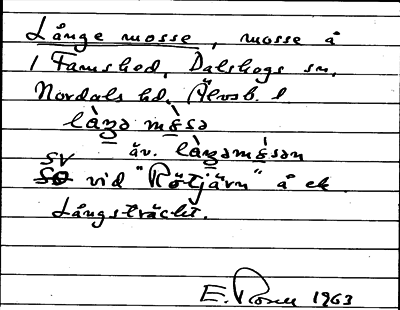 Långe mosse, mosse å
1 Famshed, Dalskogs sn,
Nordals hd. Älvsb. l
làŋə mὲsə
äv. làŋəmὲsən
SV
vid "Rötjärn" å ek.
Långsträckt.
E. Rosen 1963